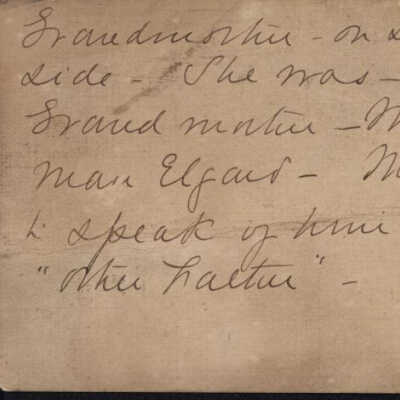 Grandmother - on
side - She was -
Grand mother -
man Elgard -
to speak of him
"other Father" -